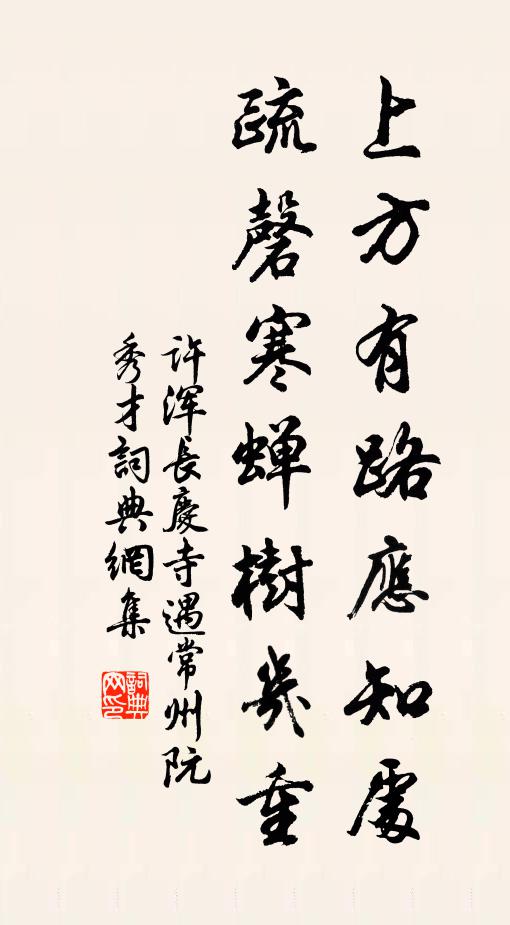 上方有路應知處
疏磬寒蝉樹幾重
許渾長慶寺遇常州阮
秀才詞典網集
詞典网印